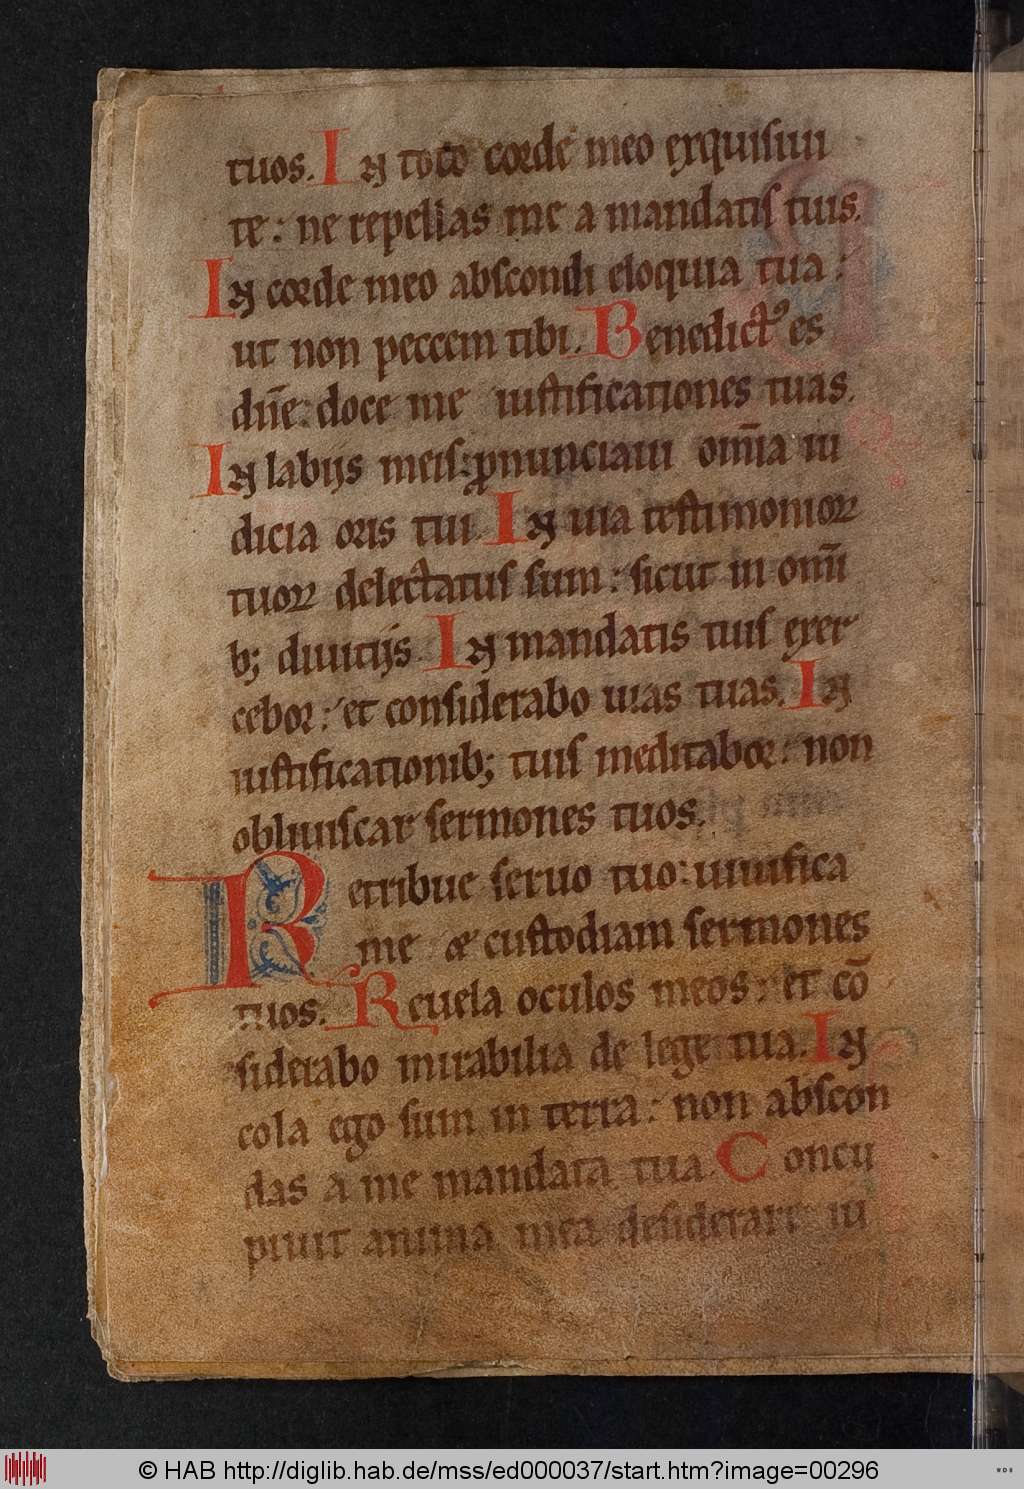 tuos. In toto corde meo exquisiui
te: ne repellas me a mandatis tuis.
In corde meo abscondi eloquia tua:
ut non peccem tibi. Benedictꝰ es
dn̄e: doce me iustificationes tuas.
In labijs meis: ꝓnunciaui om̄ia iu
dicia oris tui. In uia testimonioꝝ
tuoꝝ delectatus sum: sicut in omī
bꝫ diuitijs. In mandatis tuis exer
cebor: et considerabo uias tuas. In
iustificationibꝫ tuis meditabor: non
obliuiscar sermones tuos.
Retribue seruo tuo: uiuifica
me & custodiam sermones
tuos. Reuela oculos meos: et cō
siderabo mirabilia de lege tua. In
cola ego sum in terra: non abscon
das a me mandata tua. Concu
piuit anima mea desiderare iu
© HAB http://diglib.hab.de/mss/ed000037/start.htm?image=00296